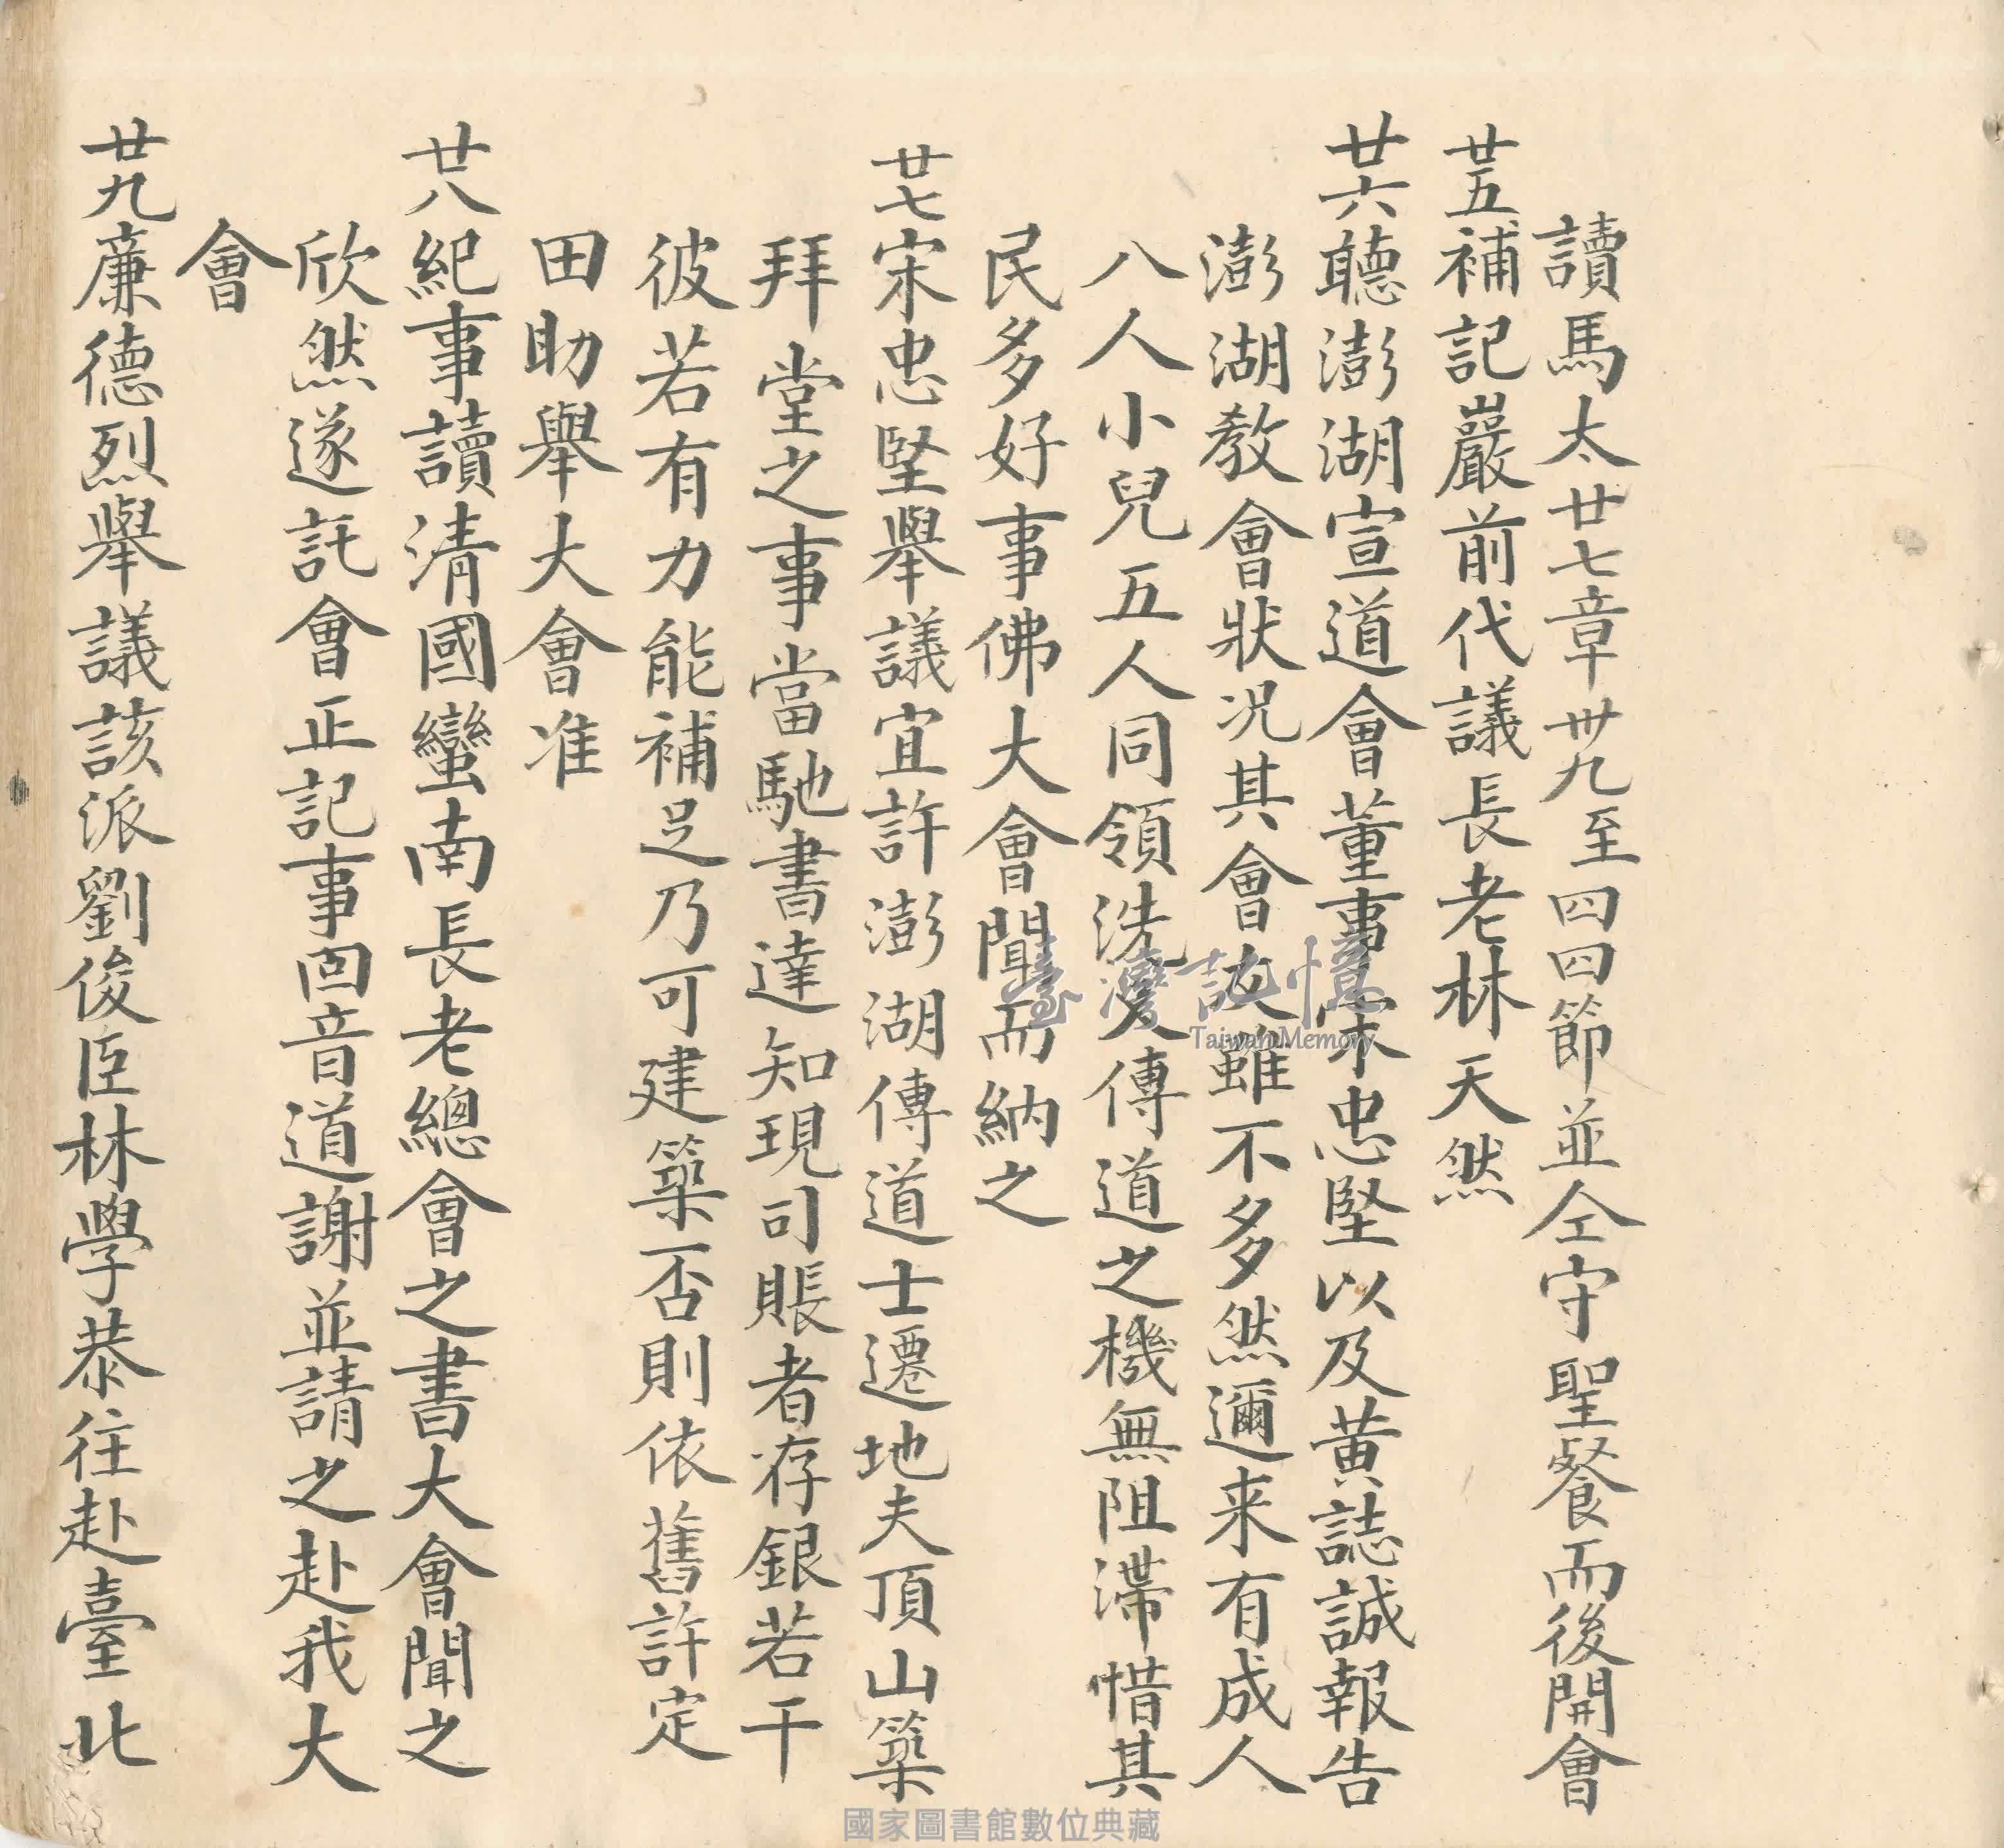 讀馬太廿七章卅九至四四節並仝守聖餐而後開會
廿五補記嚴前代議長老林天然
廿六聽澎湖宣道會董事宋忠堅以及黄誌誠報告
澎湖教會狀况其會友雖不多然邇来有成人
八人小兒五人同領洗又傳道之機無阻滯惜其
民多好事佛大會聞而納之
廿七宋忠堅舉議宜許澎湖傳道士遷地夫頂山築
拜堂之事當馳書達知現司賬者存銀若干
彼若有力能補足乃可建築否則依舊許定
田助舉大會准
廿八紀事讀清國蠻南長老總會之書大會聞之
欣然遂託會正記事回音道謝並請之赴我大
會
廿九廉德烈舉議該派劉俊臣林學恭往赴臺北
臺灣記憶
Taiwan Memory
國家圖書館數位典藏